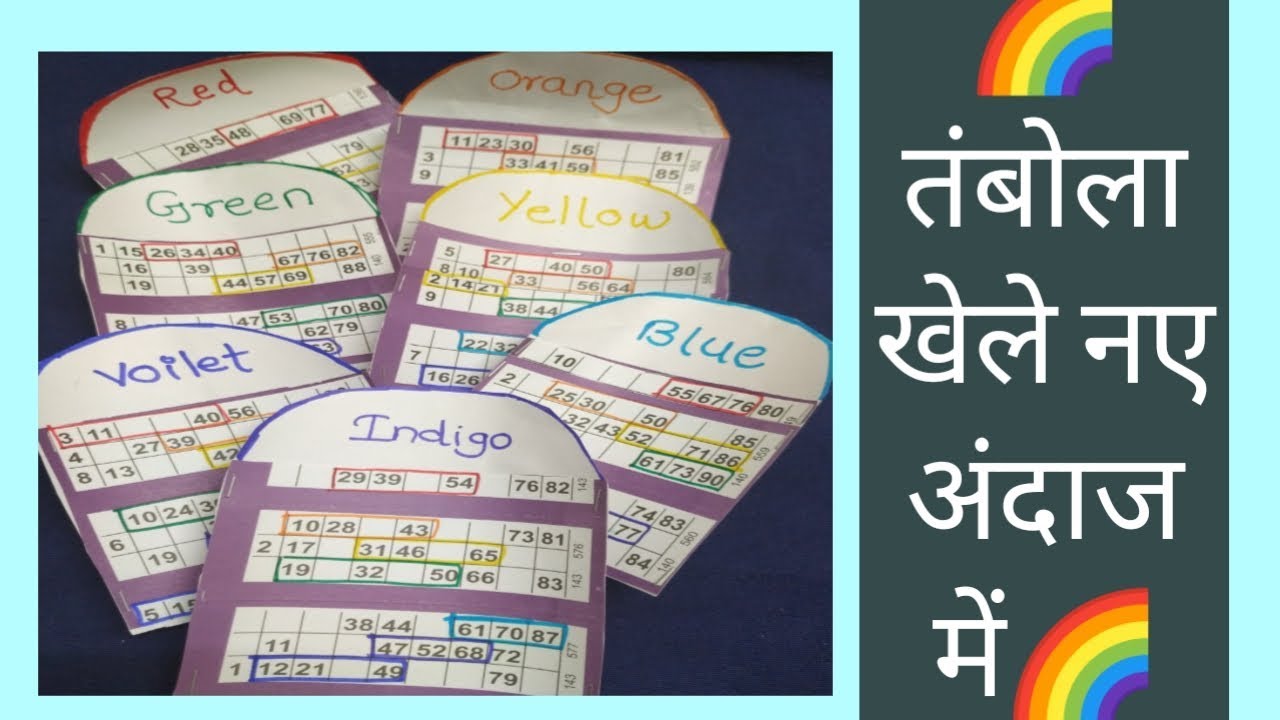 Red
28 35 48 69 77
79
62
3
Orange
11 23 30 56 81
3 33 41 59 85
9
Green
1 15 26 34 40 67 76 82
16 39 88
19 44 57 69
8 47 53 70 80
62 79
Yellow
5 27 40 50 80
8 10 33 56 64
2 14 21
9 38 44
22 32
7
16 26
Voilet
3 11 40 56
4 27 39 42
8 13
10 24
6
19
5 15
Blue
10 55 67 76 80
2 25 30 50 85
32 43 52 71 86
61 73 90
74 83
77
84
Indigo
29 39 54 76 82 143
10 28 43 73 81
2 17 31 46 65 576
19 32 50 66 83 143
38 44 61 70 87
11 47 52 68 72 577
1 12 21 49 79 143
तंबोला
खेले नए
अंदाज
में